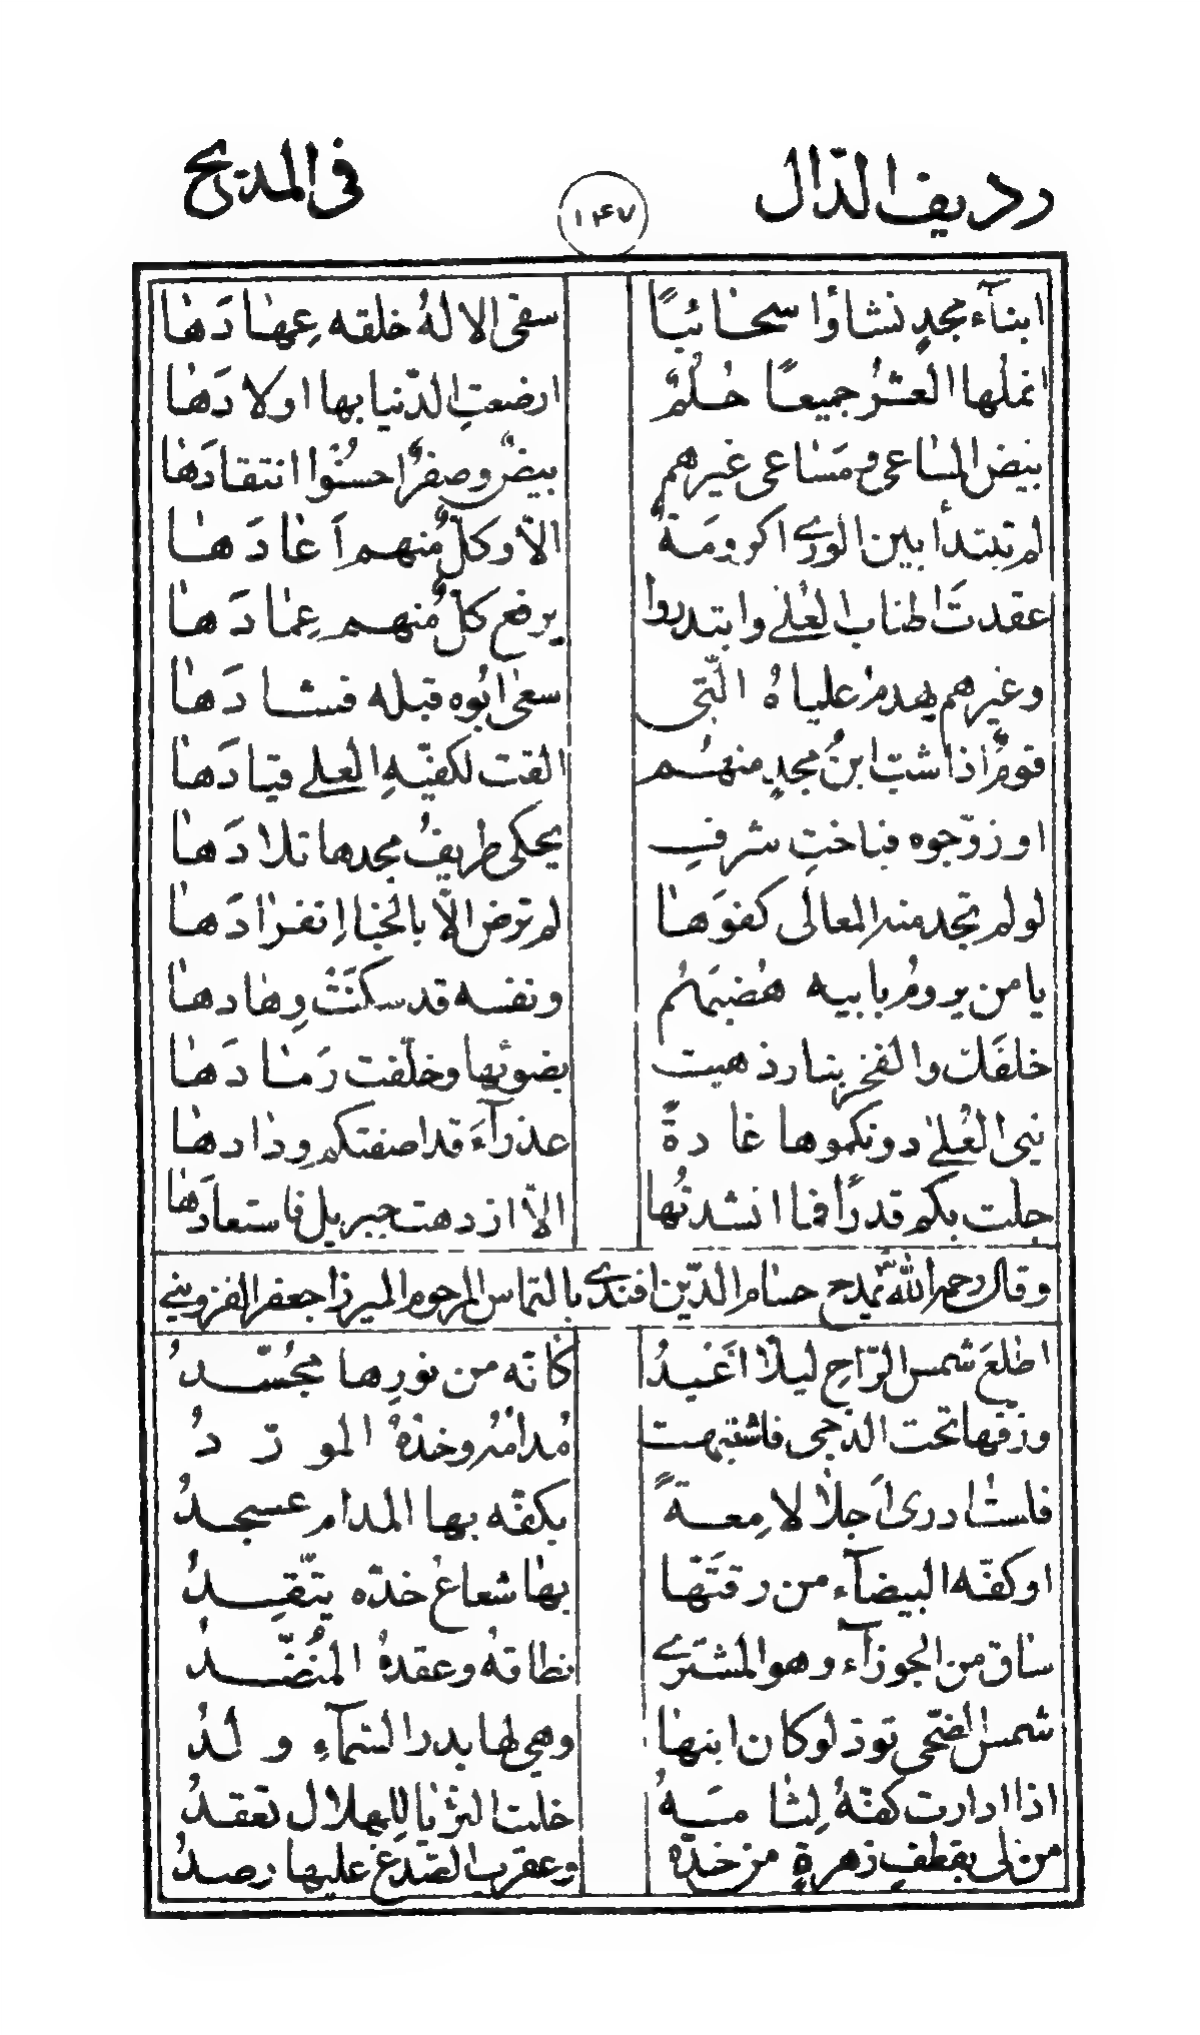 رديف الدّال ١٤٧ في المديح
ابنآء مجدٍ نشاؤا سحائبًا سقى الالهُ خلقه عِهادَها
انملها العشرُ جميعًا حُلُمٌ ارضعتِ الدّنيا بها اولادَها
بيض المساعى فى مَساعى غيرهم بيضٌ وصفرٌ احسنُوا انتقادَها
لم تبتدأ بين الورى اكرومَةٌ الاّ وكلٌّ منهم اَعادَها
عقدت اطناب العُلى وابتدروا يرفع كلٌّ منهم عِمادَها
وغيرهم يهدمُ علياهُ الّتى سعى ابُوه قبله فشادَها
قومٌ اذا شبّ ابنُ مجدٍ منهُم القت لكفيّهِ العلى قيادَها
او زوّجوه فباختِ شرفٍ يحكى طريفُ مجدها تلادَها
لو لم تجد منه المعالى كفوَها لم ترض الاّ بالخبا اِنفرادَها
يا من يرومُ بابيه هضبَهُم ونفسه قد سكنَتْ وِهادها
خلفَك والفخر بنار ذهبت بضوئها وخلّفت رَمادَها
بنى العُلى دونكموها غادةً عذرآءَ قد اصفتكم وِدادها
جلت بكم قدرًا فما انشدتُها الاّ ازدهت جبريل فاستعادَها
وقال رحمه الله يمدح حسام الدّين افندى بالتماس المرحوم الميرزا جعفر القزوينى
اطلعَ شمس الرّاحِ ليلاً اغيدُ كانّه من نورِها مجُسّدُ
وزفها تحت الدّجى فاشتبهت مُدامُهُ وخدّهُ المورّدُ
فلست ادرى اَجلا لامِعةً بكفّه بها المدام عسجدُ
او كفّه البيضآء من رقتّها بها شعاعُ خدّه يتّقِدُ
ساق من الجوزآء وهو المشترى نطاقهُ وعقدهُ المُنضّدُ
شمس الضّحى تودّ لو كان ابنها وهى لها بدر السّمآءِ ولدُ
اذا ادارت كفّهُ لِثامَهُ خلت الثريّا بالهلال تعقدُ
من لى بقطفِ زهرةٍ من خدّه وعقرب الصّدغ عليها رصدُ